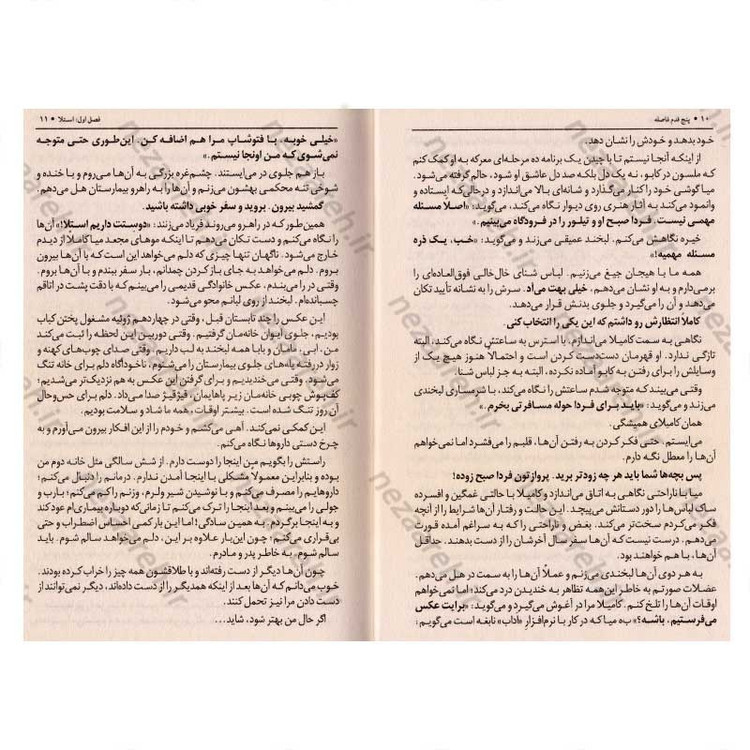 ۱۰ • پنج قدم فاصله
خود بدهد و خودش را نشان دهد.
از اینکه آنجا نیستم تا با چیدن یک برنامه ده مرحله‌ای معرکه به او کمک کنم
که ملسون در کابو، نه یک دل بلکه صد دل عاشق او شود، حالم گرفته می‌شود.
میا گوشی خود را کنار می‌گذارد و شانه‌ای بالا می‌اندازد و درحالی‌که ایستاده و
وانمود می‌کند به آثار هنری روی دیوار نگاه می‌کند، می‌گوید: «اصلاً مسئله
مهمی نیست. فردا صبح او و تیلور را در فرودگاه می‌بینیم.»
خیره نگاهش می‌کنم. لبخند عمیقی می‌زند و می‌گوید: «خب، یک ذره
مسئله مهمیه!»
همه ما با هیجان جیغ می‌زنیم. لباس شنای خال‌خالی فوق‌العاده‌ای را
برمی‌دارم و به او نشان می‌دهم، خیلی بهت می‌آد. سرش را به نشانه تأیید تکان
می‌دهد و آن را می‌گیرد و جلوی بدنش قرار می‌دهد.
کاملاً انتظارش رو داشتم که این یکی را انتخاب کنی.
نگاهی به سمت کامیلا می‌اندازم. با استرس به ساعتش نگاه می‌کند، البته
تازگی ندارد. او قهرمان دست‌دست کردن است و احتمالاً هنوز هیچ یک از
وسایلش را برای رفتن به کابو آماده نکرده، البته به جز لباس شنا.
وقتی می‌بیند که متوجه شدم ساعتش را نگاه می‌کند، با شرمساری لبخندی
می‌زند و می‌گوید: «باید برای فردا حوله مسافرتی بخرم.»
همان کامیلای همیشگی.
می‌ایستم. حتی فکر کردن به رفتن آن‌ها، قلبم را می‌فشرد اما نمی‌خواهم
آن‌ها را معطل نگه دارم.
پس بچه‌ها شما باید هر چه زودتر برید. پروازتون فردا صبح زوده!
میا با ناراحتی نگاهی به اتاق می‌اندازد و کامیلا با حالتی غمگین و افسرده
ساک لباس‌ها را دور دستانش می‌پیچد. این حالت و رفتار آن‌ها شرایط را از آنچه
فکر می‌کردم سخت‌تر می‌کند. بغض و ناراحتی را که به سراغم آمده قورت
می‌دهم. درست نیست که آن‌ها سفر سال آخرشان را از دست بدهند. حداقل
آن‌ها، با هم خواهند بود.
به هر دوی آن‌ها لبخندی می‌زنم و عملاً آن‌ها را به سمت در هل می‌دهم.
عضلات صورتم به خاطر این‌همه تظاهر به خندیدن درد می‌کند؛ اما نمی‌خواهم
اوقات آن‌ها را تلخ کنم. کامیلا مرا در آغوش می‌گیرد و می‌گوید: «برایت عکس
می‌فرستیم، باشه؟» به میا که در کار با نرم‌افزار «اداب» نابغه است می‌گویم:
فصل اول: استلا • ۱۱
«خیلی خوبه، با فتوشاپ مرا هم اضافه کن. این‌طوری حتی متوجه
نمی‌شوی که من اونجا نیستم.»
باز هم جلوی در می‌ایستند. چشم‌غره بزرگی به آن‌ها می‌روم و با خنده و
شوخی تنه محکمی بهشون می‌زنم و آن‌ها را به راهرو بیمارستان هل می‌دهم.
گمشید بیرون. بروید و سفر خوبی داشته باشید.
همین‌طور که در راهرو می‌روند فریاد می‌زنند: «دوستت داریم استلا!» آن‌ها
را نگاه می‌کنم و دست تکان می‌دهم تا اینکه موهای مجعد میا کاملاً از دیدم
خارج می‌شود. ناگهان تنها چیزی که دلم می‌خواهد این است که با آن‌ها بیرون
بروم. دلم می‌خواهد به جای باز کردن چمدانم، بار سفر ببندم و با آن‌ها بروم.
وقتی در را می‌بندم، عکس خانوادگی قدیمی را می‌بینم که با دقت پشت در اتاقم
چسبانده‌ام. لبخند از روی لبانم محو می‌شود.
این عکس را چند تابستان قبل، وقتی در چهاردهم ژوئیه مشغول پختن کباب
بودیم، جلوی ایوان خانه‌مان گرفتیم. وقتی دوربین این لحظه را ثبت می‌کند
من، ابی، مامان و بابا همه لبخند به لب داریم. وقتی صدای چوب‌های کهنه و
زوار دررفته پله‌های جلوی بیمارستان را می‌شنوم، ناخودآگاه دلم برای خانه تنگ
می‌شود. وقتی می‌خندیدیم و برای گرفتن این عکس به هم نزدیک‌تر می‌شدیم؛
کف‌پوش چوبی خانه‌مان زیر پاهایمان، قیژقیژ صدا می‌داد. دلم برای حس‌وحال
آن روز تنگ شده است. بیشتر اوقات، همه ما شاد و سلامت بودیم.
این کمکی نمی‌کند. آهی می‌کشم و خودم را از این افکار بیرون می‌آورم و به
چرخ دستی داروها نگاه می‌کنم.
راستش را بگویم من اینجا را دوست دارم. از شش سالگی مثل خانه دوم من
بوده و بنابراین معمولاً مشکلی با اینجا آمدن ندارم. درمانم را دنبال می‌کنم؛
داروهایم را مصرف می‌کنم و با نوشیدن شیر ولرم، وزنم را کم می‌کنم؛ بارب و
جولی را می‌بینم و بعد اینجا را ترک می‌کنم تا زمانی‌که دوباره بیماری‌ام عود کند
و به اینجا برگردم. به همین سادگی؛ اما این بار کمی احساس اضطراب و حتی
بی‌قراری می‌کنم؛ چون این‌بار علاوه بر این، دلم می‌خواهد سالم شوم. باید
سالم شوم. به خاطر پدر و مادرم.
چون آن‌ها دیگر از دست رفته‌اند و با طلاقشون همه چیز را خراب کرده بودند.
خوب می‌دانم که آن‌ها بعد از اینکه همدیگر را از دست داده‌اند، دیگر نمی‌توانند از
دست دادن مرا نیز تحمل کنند.
اگر حال من بهتر شود، شاید...
nezaareh.ir